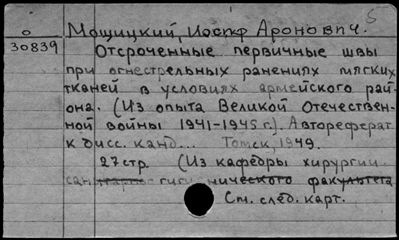 5
о
30839
Мощицкий, Иосиф Аронович.
Отсроченные первичные швы
при огнестрельных ранениях мягких
тканей в условиях армейского рай-
она. (Из опыта Великой Отечествен-
ной войны 1941-1945 г.). Автореферат
к дисс. канд... Томск, 1949.
27 стр. (Из кафедры хирургии
санитарно-гигиенического факультета
См. след. карт.